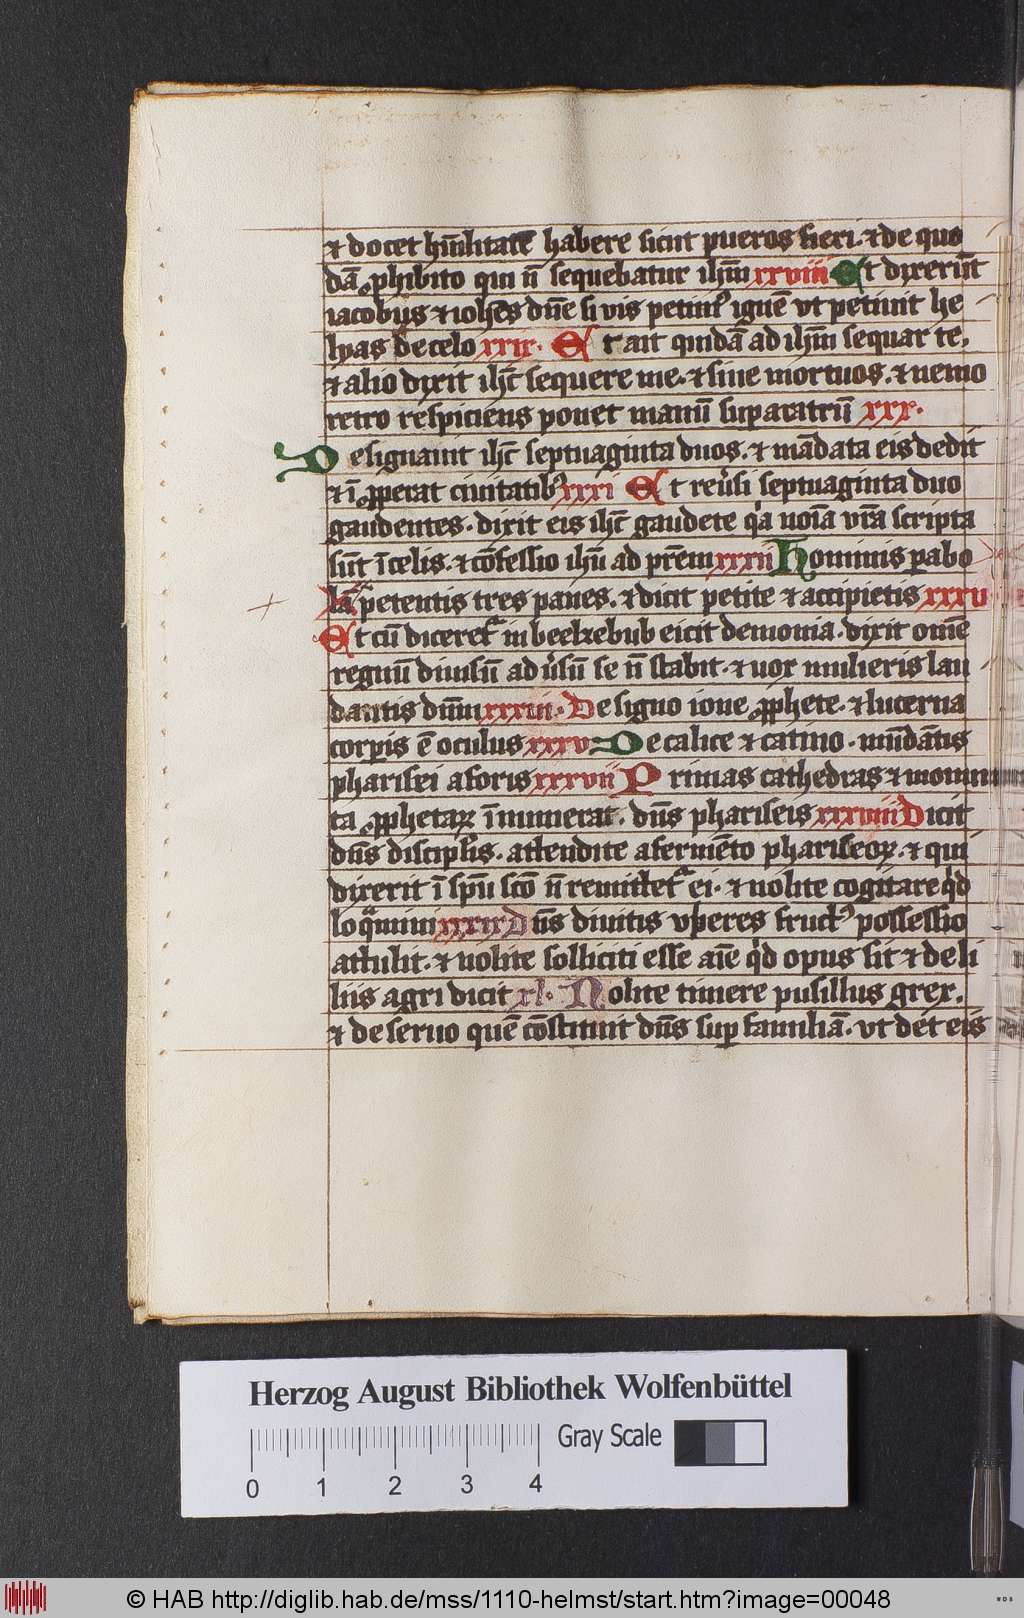 ⁊ docet hu̅ilitate̅ habere sicut pueros fieri. ⁊ de quo
da̅ ꝓhibito qui n̅ sequebatur ih̅m xxviii Et dixeru̅t
iacobus ⁊ ioh̅es dn̅e si vis petimꝰ igne̅ vt petiuit he
lyas de celo xxix. Et ait quida̅ ad ih̅m sequar te.
⁊ alio dixit ih̅c sequere me. ⁊ sine mortuos. ⁊ nemo
retro respiciens ponet manu̅ suꝑ aratru̅ xxx.
Designauit ih̅c septuaginta duos. ⁊ ma̅data eis dedit
⁊ i̅ ꝓꝑerat ciuitatibꝰ xxxi Et reu̓si septuaginta duo
gaudentes. dixit eis ih̅c gaudete qͥa no̅ia vr̅a scripta
su̅t i̅ celis. ⁊ co̅fessio ih̅u ad pr̅em xxxii Hominis ꝑabo
la̅ petentis tres panes. ⁊ dicit petite ⁊ accipietis xxxv
Et cu̅ diceret᷑ in beelzebub eicit demonia. dixit om̅e
regnu̅ diuisu̅ adu̓su̅ se n̅ stabit. ⁊ uox mulieris lau
dantis dn̅m xxxiii. De signo ione ꝓphete. ⁊ lucerna
corꝑis e̅ oculus xxxv De calice ⁊ catino. mu̅da̅tis
pharisei a foris xxxvii Primas cathedras ⁊ monim̅
ta ꝓphetaꝝ i̅numerat. dn̅s phariseis xxxviii Dicit
dn̅s discipl̓is. attendite a ferme̅to phariseoꝝ. ⁊ qui
dixerit i̅ spm̅ sco̅ n̅ remittet᷑ ei. ⁊ nolite cogitare qͥd
loqͣmini xxxix Dn̅s diuitis vberes fructꝰ possessio
attulit. ⁊ nolite solliciti esse ai̅e qͥd opus sit ⁊ de li
liis agri dicit xl. Nolite timere pusillus grex.
⁊ de seruo que̅ co̅stituit dn̅s suꝑ familia̅. vt det eis
Herzog August Bibliothek Wolfenbüttel
Gray Scale
0 1 2 3 4
© HAB http://diglib.hab.de/mss/1110-helmst/start.htm?image=00048